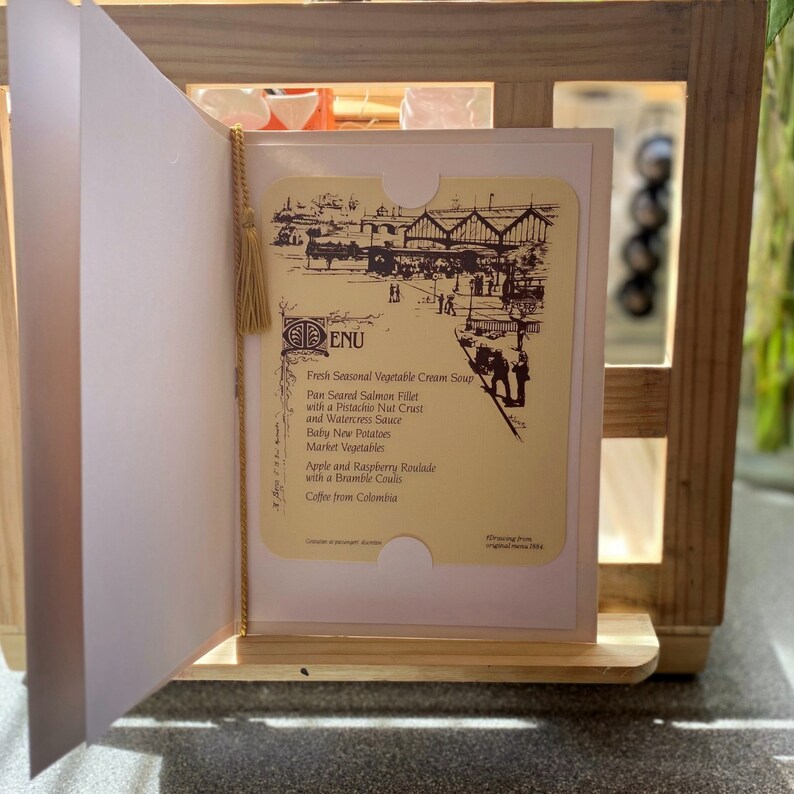 MENU
Fresh Seasonal Vegetable Cream Soup
Pan Seared Salmon Fillet
with a Pistachio Nut Crust
and Watercress Sauce
Baby New Potatoes
Market Vegetables
Apple and Raspberry Roulade
with a Bramble Coulis
Coffee from Colombia
Gratuities at passengers' discretion
†Drawing from
original menu 1884